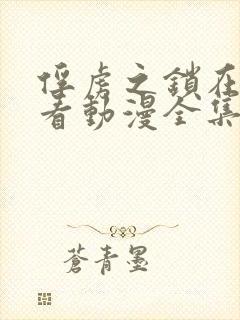 俘虏之鎖在
看動漫全集
蒼青墨